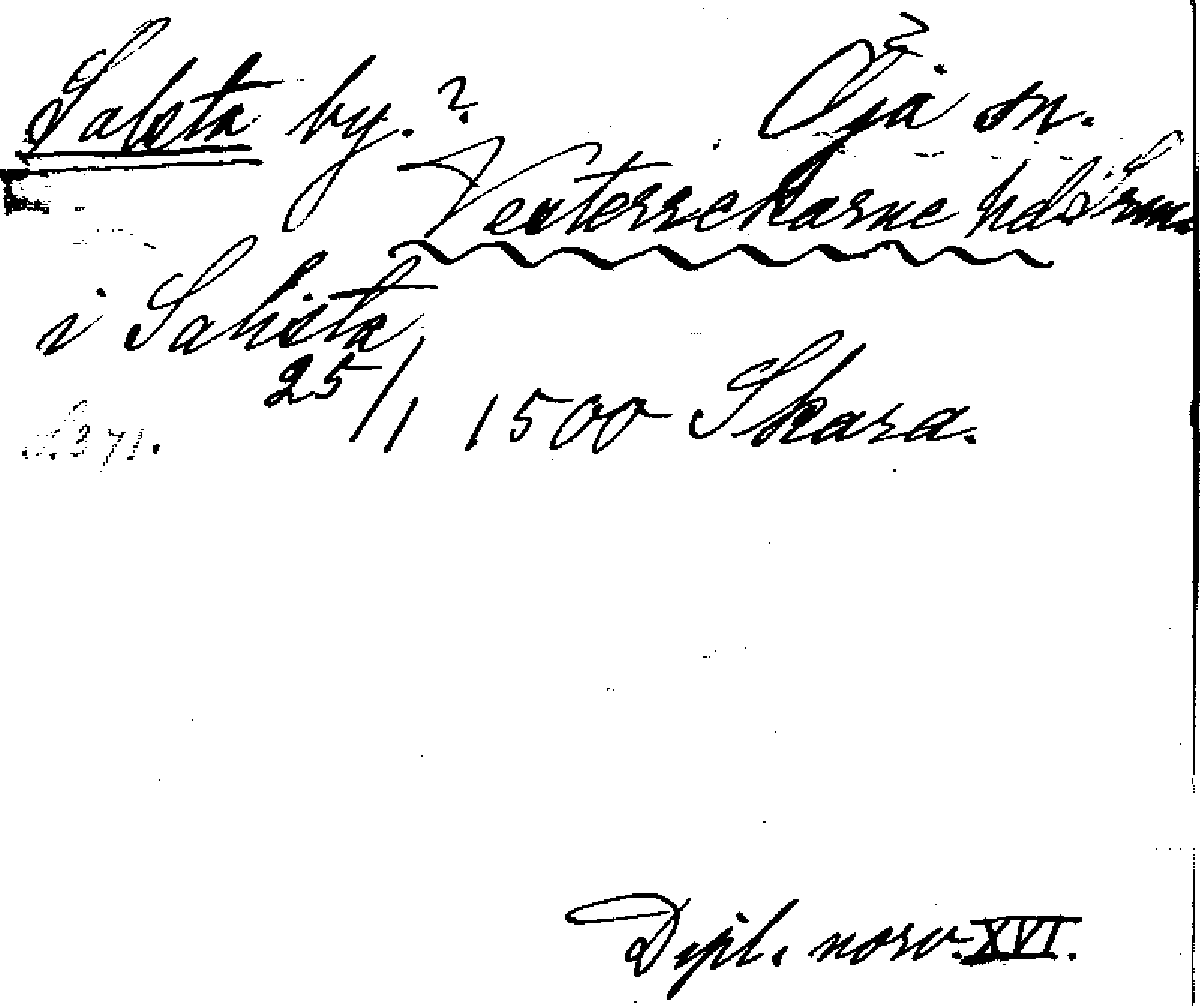 Salsta by.? Öja sn.
Vesterrekarne hd Srm.
i Salista
25/1 1500 Skara.
s. 371.
Dipl. norv. XVI.